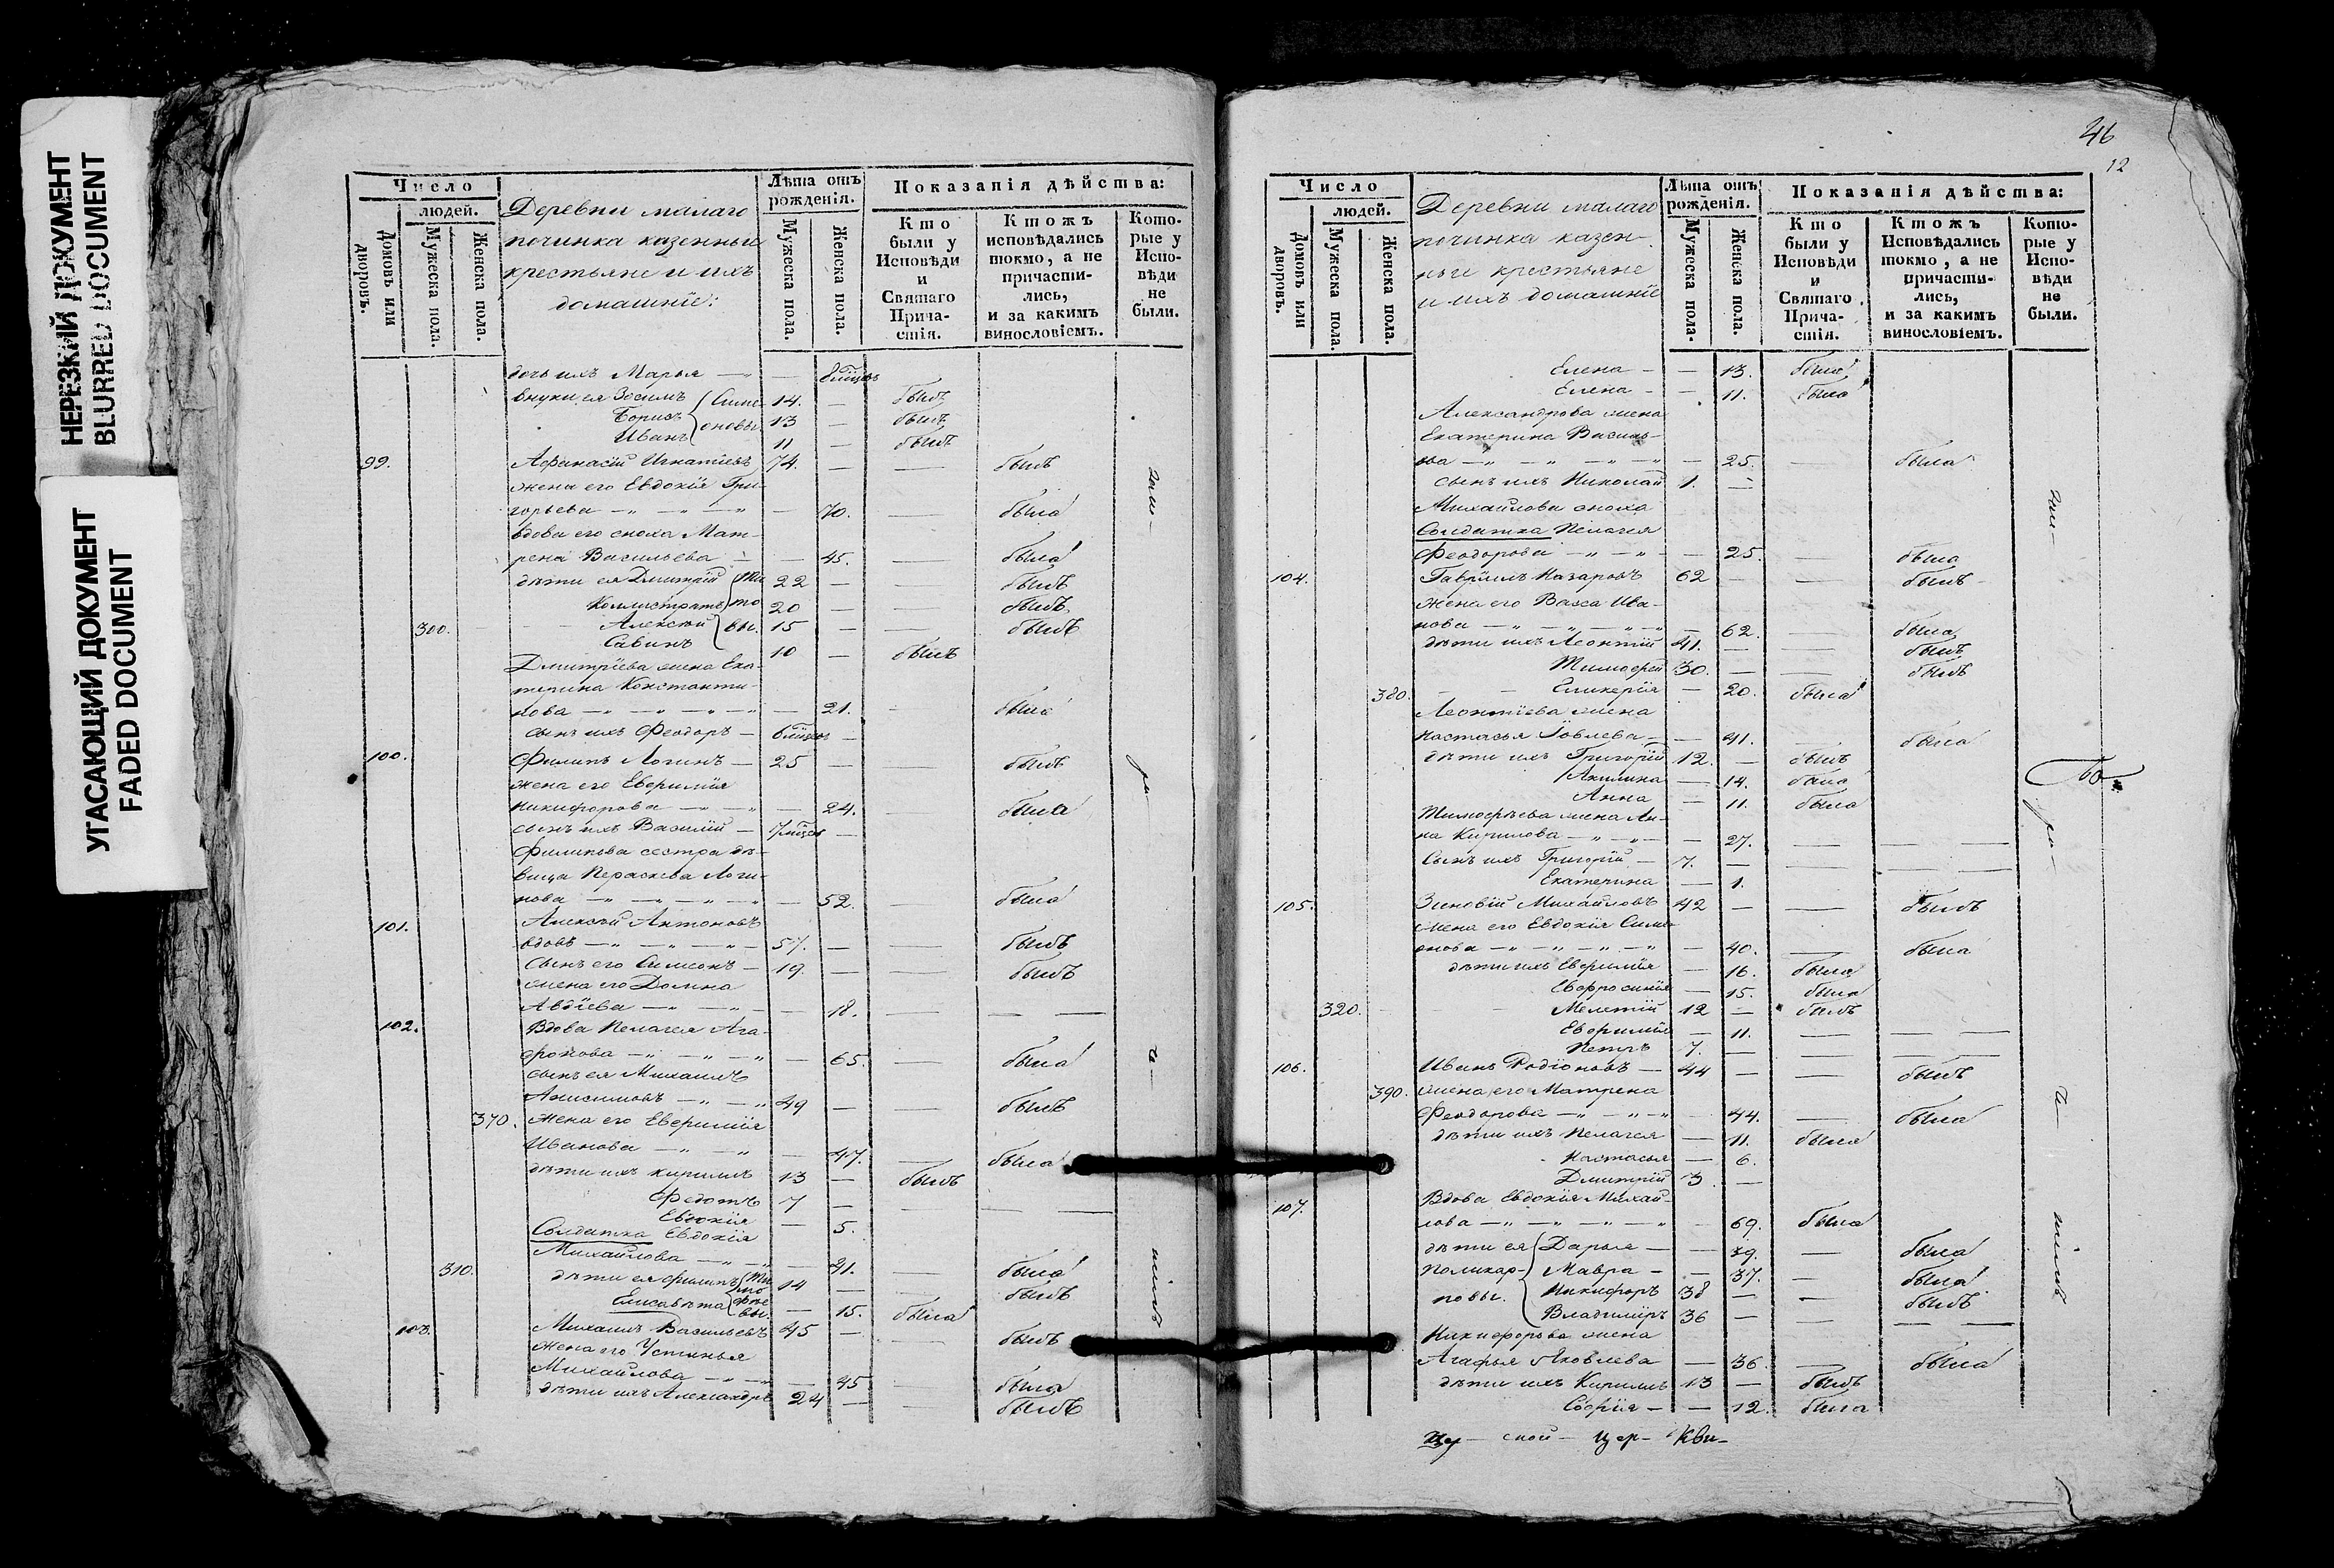 НЕРЕЗКИЙ ДОКУМЕНТ
BLURRED DOCUMENT
УГАСАЮЩИЙ ДОКУМЕНТ
FADED DOCUMENT
Число
людей.
Домовъ или дворовъ.
Мужеска пола.
Женска пола.
Деревни малаго
починка казенные
крестьяне и ихъ
домашніе:
Лѣта отъ рожденія.
Мужеска пола.
Женска пола.
Показанія дѣйства:
Кто были у Исповѣди и Святаго Прича-стія.
Ктожъ исповѣдались токмо, а не причасти-лись, и за какимъ винословіемъ.
Кото-рые у Испо-вѣди не были.
дочь ихъ Марья —
внуки ея Зосимъ Симе- 14. — былъ
Борисъ оновы 13 — былъ
Иванъ 11 — былъ
99. Афанасій Игнатіевъ 74. — — былъ
жена его Евдокія Гри-
горьева — — 70. — была
вдова его сноха Мат-
рена Васильева — — 45. — была
дѣти ея Дмитрій 22 — — былъ
Каллистратъ 20 — — былъ
300. Алексѣй 15 — — былъ
Савинъ 10 — былъ
Дмитріева жена Ека-
терина Константи-
нова — — 21. была
сынъ ихъ Феодоръ —
100. Филипъ Логинъ — 25 — — былъ
жена его Евфимія
Никифорова — — 24. — была
сынъ ихъ Василій —
Филипова сестра дѣ-
вица Параскева Логи-
нова — — 52. — была
101. Алексѣй Антоновъ
вдовъ — 57. — — былъ
сынъ его Симеонъ — 19. — — былъ
жена его Домна
Авдіева — — 18. — — —
102. Вдова Пелагея Ага-
фонова — — 65. — была
сынъ ея Михаилъ
Анисимовъ — 49 — — былъ
370. жена его Евфимія
Иванова — — 47. — была
дѣти ихъ Кирилъ 13 — былъ
Федотъ 7 — — — —
Евдокія — 5.
Солдатка Евдокія
Михайлова — — 41. — была
310. дѣти ея Филипъ 14 — — былъ
Елисавета — 15. была
103. Михаилъ Васильевъ 45 — — былъ
жена его Устинья
Михайлова — — 45 была
дѣти ихъ Александръ 24 — — былъ
46
12
Число
людей.
Домовъ или дворовъ.
Мужеска пола.
Женска пола.
Деревни малаго
починка казен-
ные крестьяне
и ихъ домашніе
Лѣта отъ рожденія.
Мужеска пола.
Женска пола.
Показанія дѣйства:
Кто были у Исповѣди и Святаго Прича-стія.
Ктожъ Исповѣдались токмо, а не причасти-лись, и за какимъ винословіемъ.
Кото-рые у Испо-вѣди не были.
Елена — — 13. была
Елена — — 11. была
Александрова жена
Екатерина Василь-
ва — — 25. — была
сынъ ихъ Николай 1. —
Михайлова сноха
Солдатка Пелагея
Феодорова — — 25. — была
104. Гавріилъ Назаровъ 62 — былъ
жена его Васса Ива-
нова — — 62. — была
дѣти ихъ Леонтій 41. — — былъ
Тимофей 30. — — былъ
380. Гликерія — 20. была
Леонтіева жена
Настасья Іовлева — — 41. — была
дѣти ихъ Григорій 12. — былъ
Акилина — 14. была
Анна — 11. была
Тимофѣева жена Ан-
на Кирилова — — 27. — — —
сынъ ихъ Григорій — 7. — — — —
Екатерина — 1.
105. Зиновій Михайловъ 42 — — былъ
жена его Евдокія Симе-
онова — — 40. — была
дѣти ихъ Евфимія — 16. была
Евфросинія — 15. была
320. Мелетій 12 — былъ
Евфимія — 11. — — —
Петръ 7. — — —
106. Иванъ Родіоновъ — 44 — — былъ
390. жена его Матрена
Феодорова — 44. — была
дѣти ихъ Пелагея — 11. была
Настасья — 6.
Дмитрій 3. —
107. Вдова Евдокія Михай-
лова — — 69. была
дѣти ея Дарья — — 39. — была
Поликар- Мавра — — 37. — была
повы. Никифоръ 38 — — былъ
Владиміръ 36 — — — —
Никифорова жена
Агафья Яковлева — 36. — была
дѣти ихъ Кирилъ 13 — былъ
Софія — — 12. была
ской — Цер- кви-